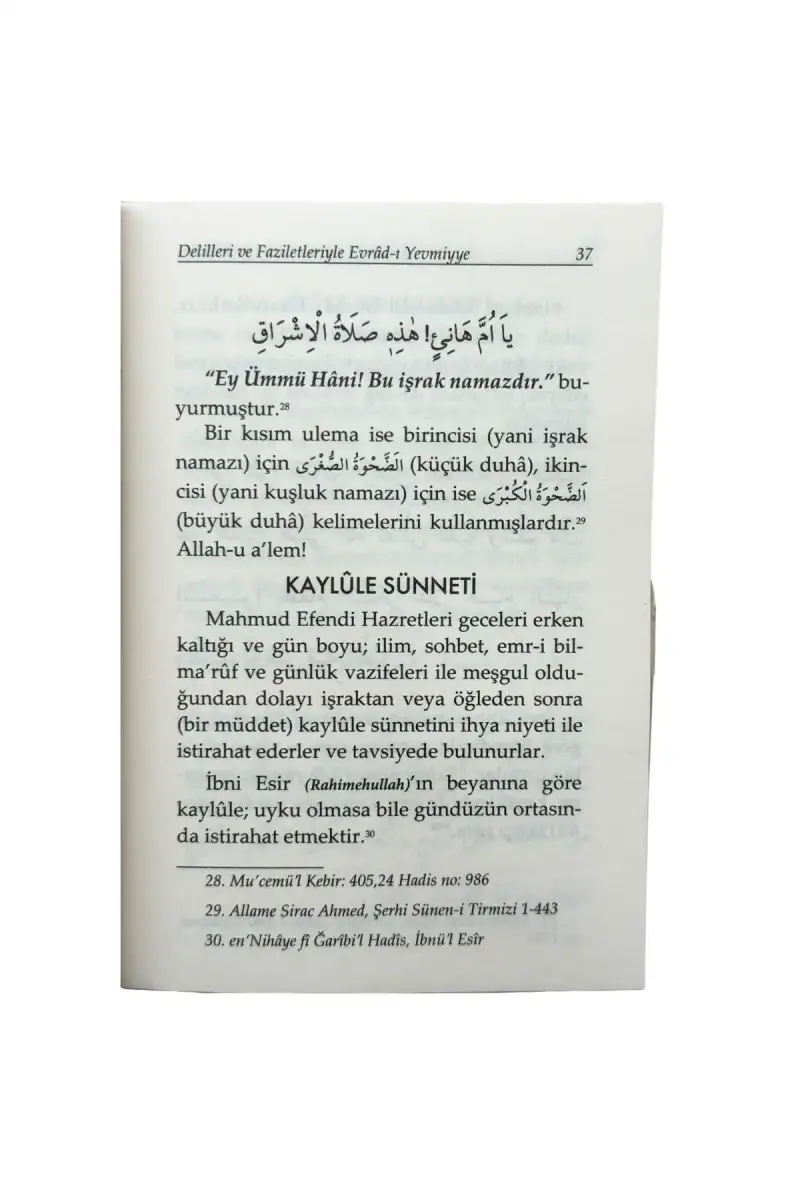 Delilleri ve Faziletleriyle Evrâd-ı Yevmiyye 37
يَا أُمَّ هَانِئٍ! هٰذِهِ صَلَاةُ الْاِشْرَاقِ
"Ey Ümmü Hâni! Bu işrak namazdır." bu-
yurmuştur.²⁸
Bir kısım ulema ise birincisi (yani işrak
namazı) için اَلضَّحْوَةُ الصُّغْرَى (küçük duhâ), ikin-
cisi (yani kuşluk namazı) için ise اَلضَّحْوَةُ الْكُبْرَى
(büyük duhâ) kelimelerini kullanmışlardır.²⁹
Allah-u a'lem!
KAYLÛLE SÜNNETİ
Mahmud Efendi Hazretleri geceleri erken
kaltığı ve gün boyu; ilim, sohbet, emr-i bil-
ma'rûf ve günlük vazifeleri ile meşgul oldu-
ğundan dolayı işraktan veya öğleden sonra
(bir müddet) kaylûle sünnetini ihya niyeti ile
istirahat ederler ve tavsiyede bulunurlar.
İbni Esir (Rahimehullah)'ın beyanına göre
kaylûle; uyku olmasa bile gündüzün ortasın-
da istirahat etmektir.³⁰
28. Mu'cemü'l Kebir: 405,24 Hadis no: 986
29. Allame Sirac Ahmed, Şerhi Sünen-i Tirmizi 1-443
30. en'Nihâye fî Ğarîbi'l Hadîs, İbnü'l Esîr